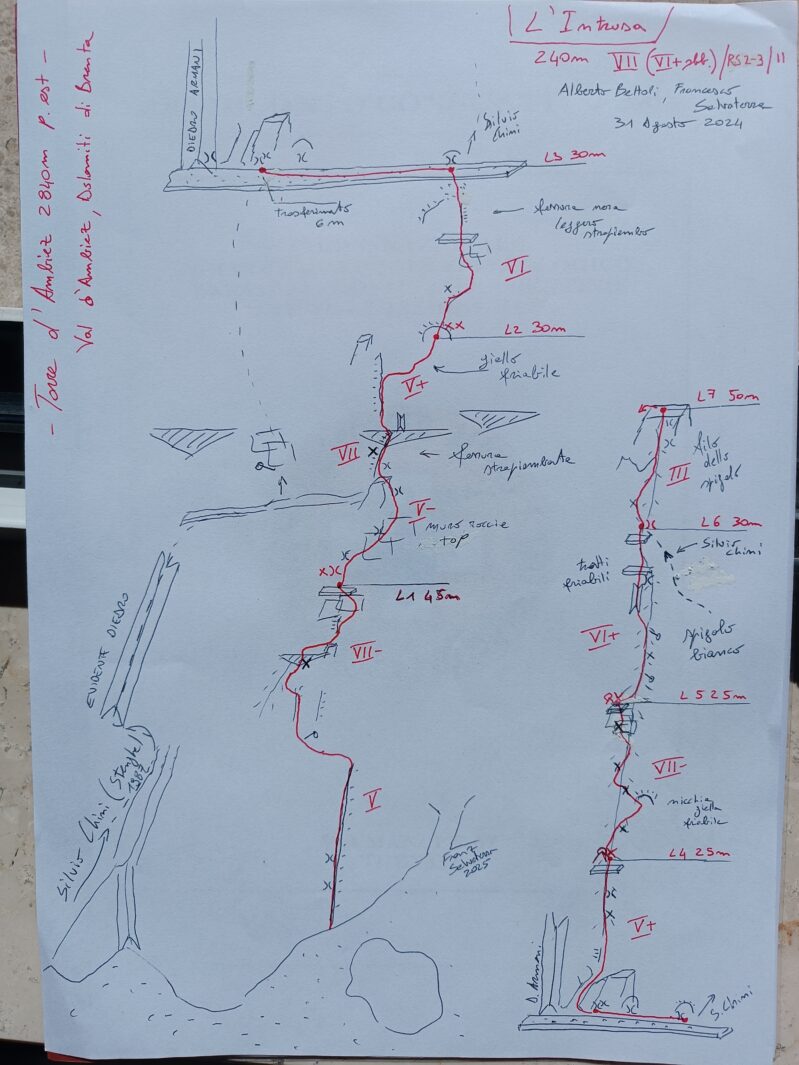 L'Intrusa
240m VII (VI+ obb.)/RS2-3/II
Alberto Bettoli, Francesco
Salvaterra
31 Agosto 2024
- Torre d'Ambiez 2840m p. est -
Val d'Ambiez, Dolomiti di Brenta
DIEDRO ARMANI
Silvio
Chimi
L3 30m
trasferimento
6m
fessura nera
leggero
strapiombo
VI
L2 30m
giallo
friabile
V+
VII
fessura
strapiombante
V-
muro roccie
top
L1 45m
VII-
EVIDENTE DIEDRO
Silvio Chimi (Stenghel)
1987
V
Franz
Salvaterra
2025
L7 50m
filo
dello
spigolo
III
L6 30m
Silvio
Chimi
tratti
friabili
VI+
spigolo
bianco
L5 25m
VII-
nicchia
gialla
friabile
L4 25m
V+
D. Armani
S. Chimi